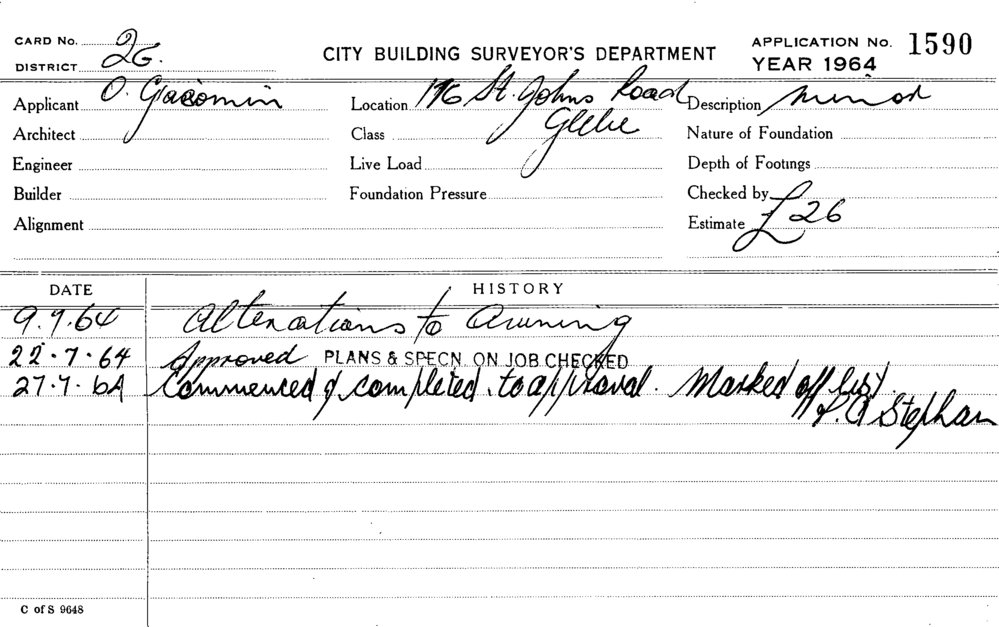 CARD No. 2G.
DISTRICT
CITY BUILDING SURVEYOR'S DEPARTMENT
APPLICATION No. 1590
YEAR 1964
Applicant O. Giacomin
Location 176 St. Johns Road
Glebe
Description Minor
Architect
Class
Nature of Foundation
Engineer
Live Load
Depth of Footings
Builder
Foundation Pressure
Checked by
Alignment
Estimate £26
DATE HISTORY
9.7.64 Alterations to Awning
22.7.64 Approved PLANS & SPECN. ON JOB CHECKED
27.7.64 Commenced & completed to approval. Marked off list.
Stephan
C of S 9648